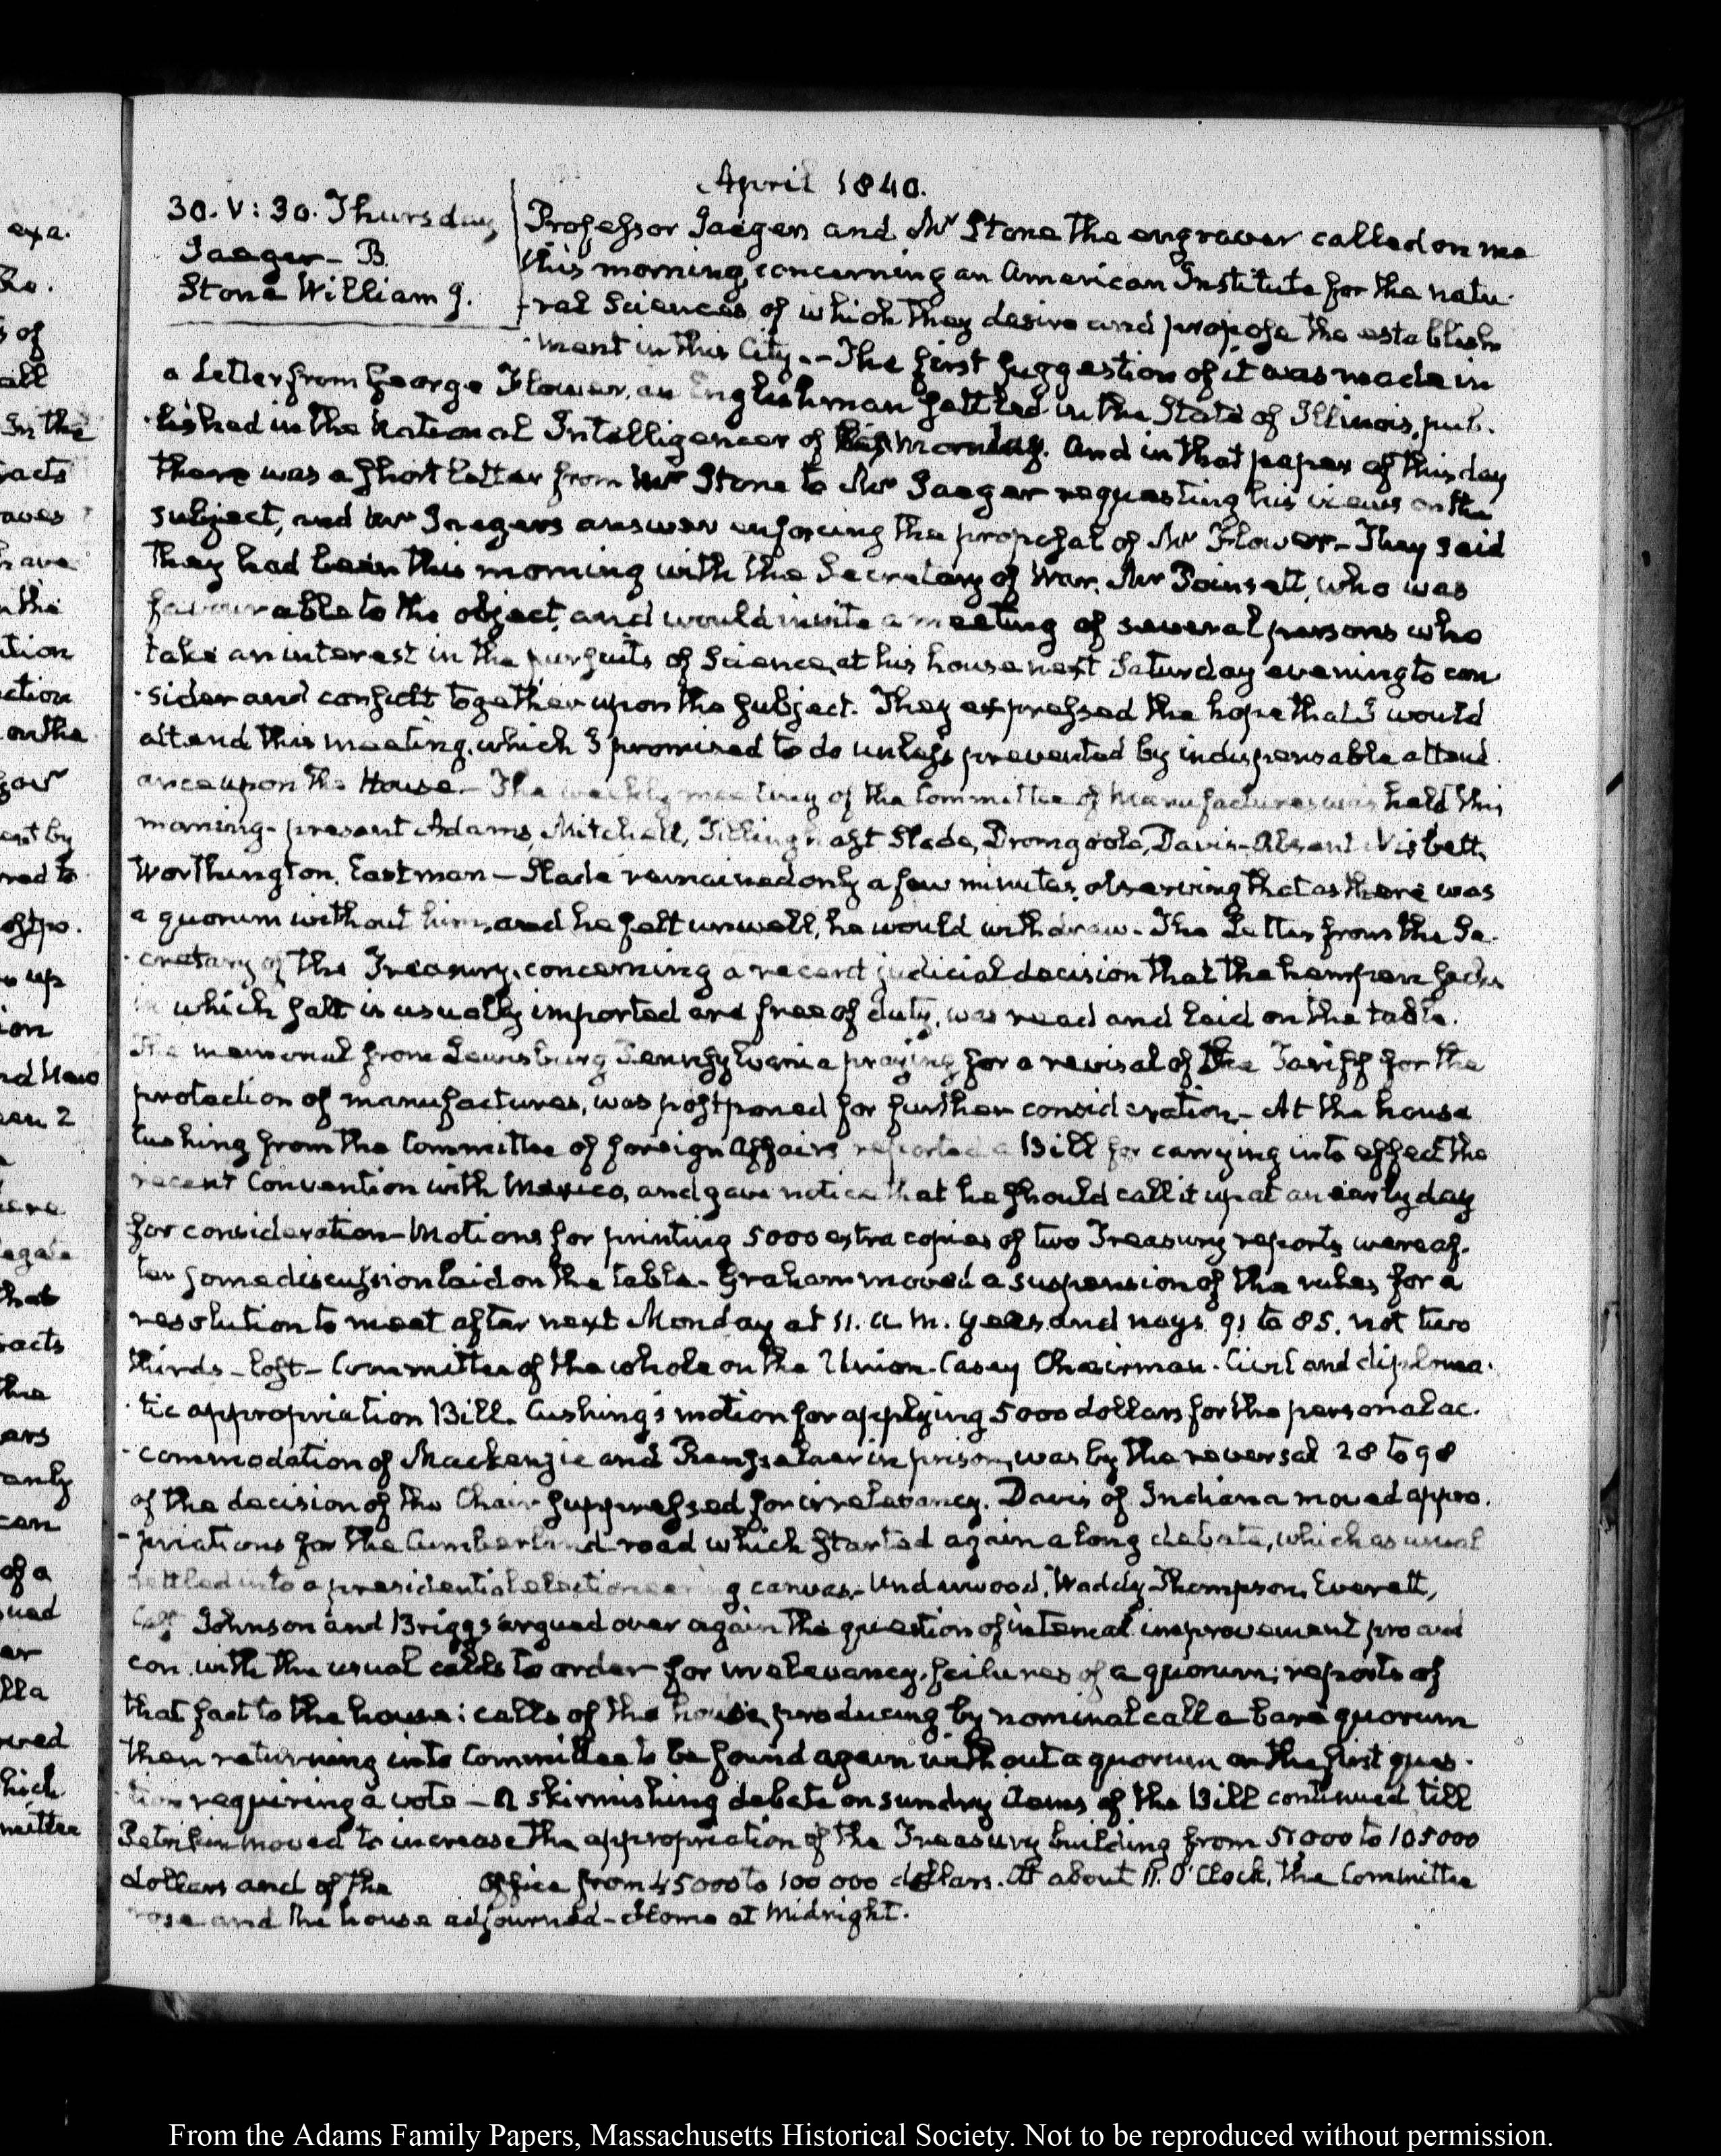 April 1840.
30. V: 30. Thursday
Jaeger - B.
Stone William J.
Professor Jaeger and Mr Stone the engraver called on me
this morning, concerning an American Institute for the natu-
-ral Sciences of which they desire and propose the establish
-ment in this City. - The first suggestion of it was made in
a Letter from George Flower, an Englishman settled in the State of Illinois, pub-
-lished in the National Intelligencer of Monday. and in that paper of this day
there was a short letter from Mr Stone to Mr Jaeger requesting his views on the
subject, and Mr Jaegers answer enforcing the proposal of Mr Flower - They said
they had been this morning with the Secretary of War, Mr Poinsett, who was
favourable to the object, and would invite a meeting of several persons who
take an interest in the pursuits of Science, at his house next Saturday evening to con
-sider and consult together upon the subject. They expressed the hope that I would
attend this meeting, which I promised to do unless prevented by indispensable attend
ance upon the House. - The weekly meeting of the Committee of Manufactures was held this
morning - present Adams, Mitchell, Tillinghast Slade, Dromgoole, Davis - Absent Nisbett,
Worthington, Eastman - Slade remained only a few minutes, observing that as there was
a quorum without him, and he felt unwell, he would withdraw. The Letter from the Se-
-cretary of the Treasury, concerning a recent judicial decision that the hempen sacks
in which salt is usually imported are free of duty, was read and laid on the table.
The memorial from Lewisburg Pennsylvania praying for a revisal of the Tariff for the
protection of manufactures, was postponed for further consideration - At the house
Cushing from the Committee of foreign Affairs reported a Bill for carrying into effect the
recent Convention with Mexico, and gave notice that he should call it up at an early day
for consideration - Motions for printing 5000 extra copies of two Treasury reports were af-
ter some discussion laid on the table - Graham moved a suspension of the rules for a
resolution to meet after next Monday at 11. a.m. yeas and nays 91 to 85. not two
thirds - lost - Committee of the whole on the Union. Casey Chairman. Civil and diploma-
-tic appropriation Bill. Cushing's motion for applying 5000 dollars for the personal ac-
-commodation of Mackenzie and Rensselaer in prison, was by the reversal 28 to 98
of the decision of the Chair suppressed for irrelevancy. Davis of Indiana moved appro-
-priations for the Cumberland road which started again a long debate, which as usual
settled into a presidential electioneering canvas - Underwood, Waddy Thompson, Everett,
Johnson and Briggs argued over again the question of internal improvement pro and
con. with the usual calls to order for irrelevancy, failures of a quorum; reports of
that fact to the house: calls of the house, producing by nominal call a bare quorum
then returning into Committee to be found again without a quorum on the first ques-
-tion requiring a vote - A skirmishing debate on sundry items of the Bill continued till
Petrikin moved to increase the appropriation of the Treasury building from 5000 to 105000
dollars and of the Office from 45000 to 100 000 dollars. At about 11. O'Clock, the Committee
rose and the house adjourned - Home at Midnight.
From the Adams Family Papers, Massachusetts Historical Society. Not to be reproduced without permission.